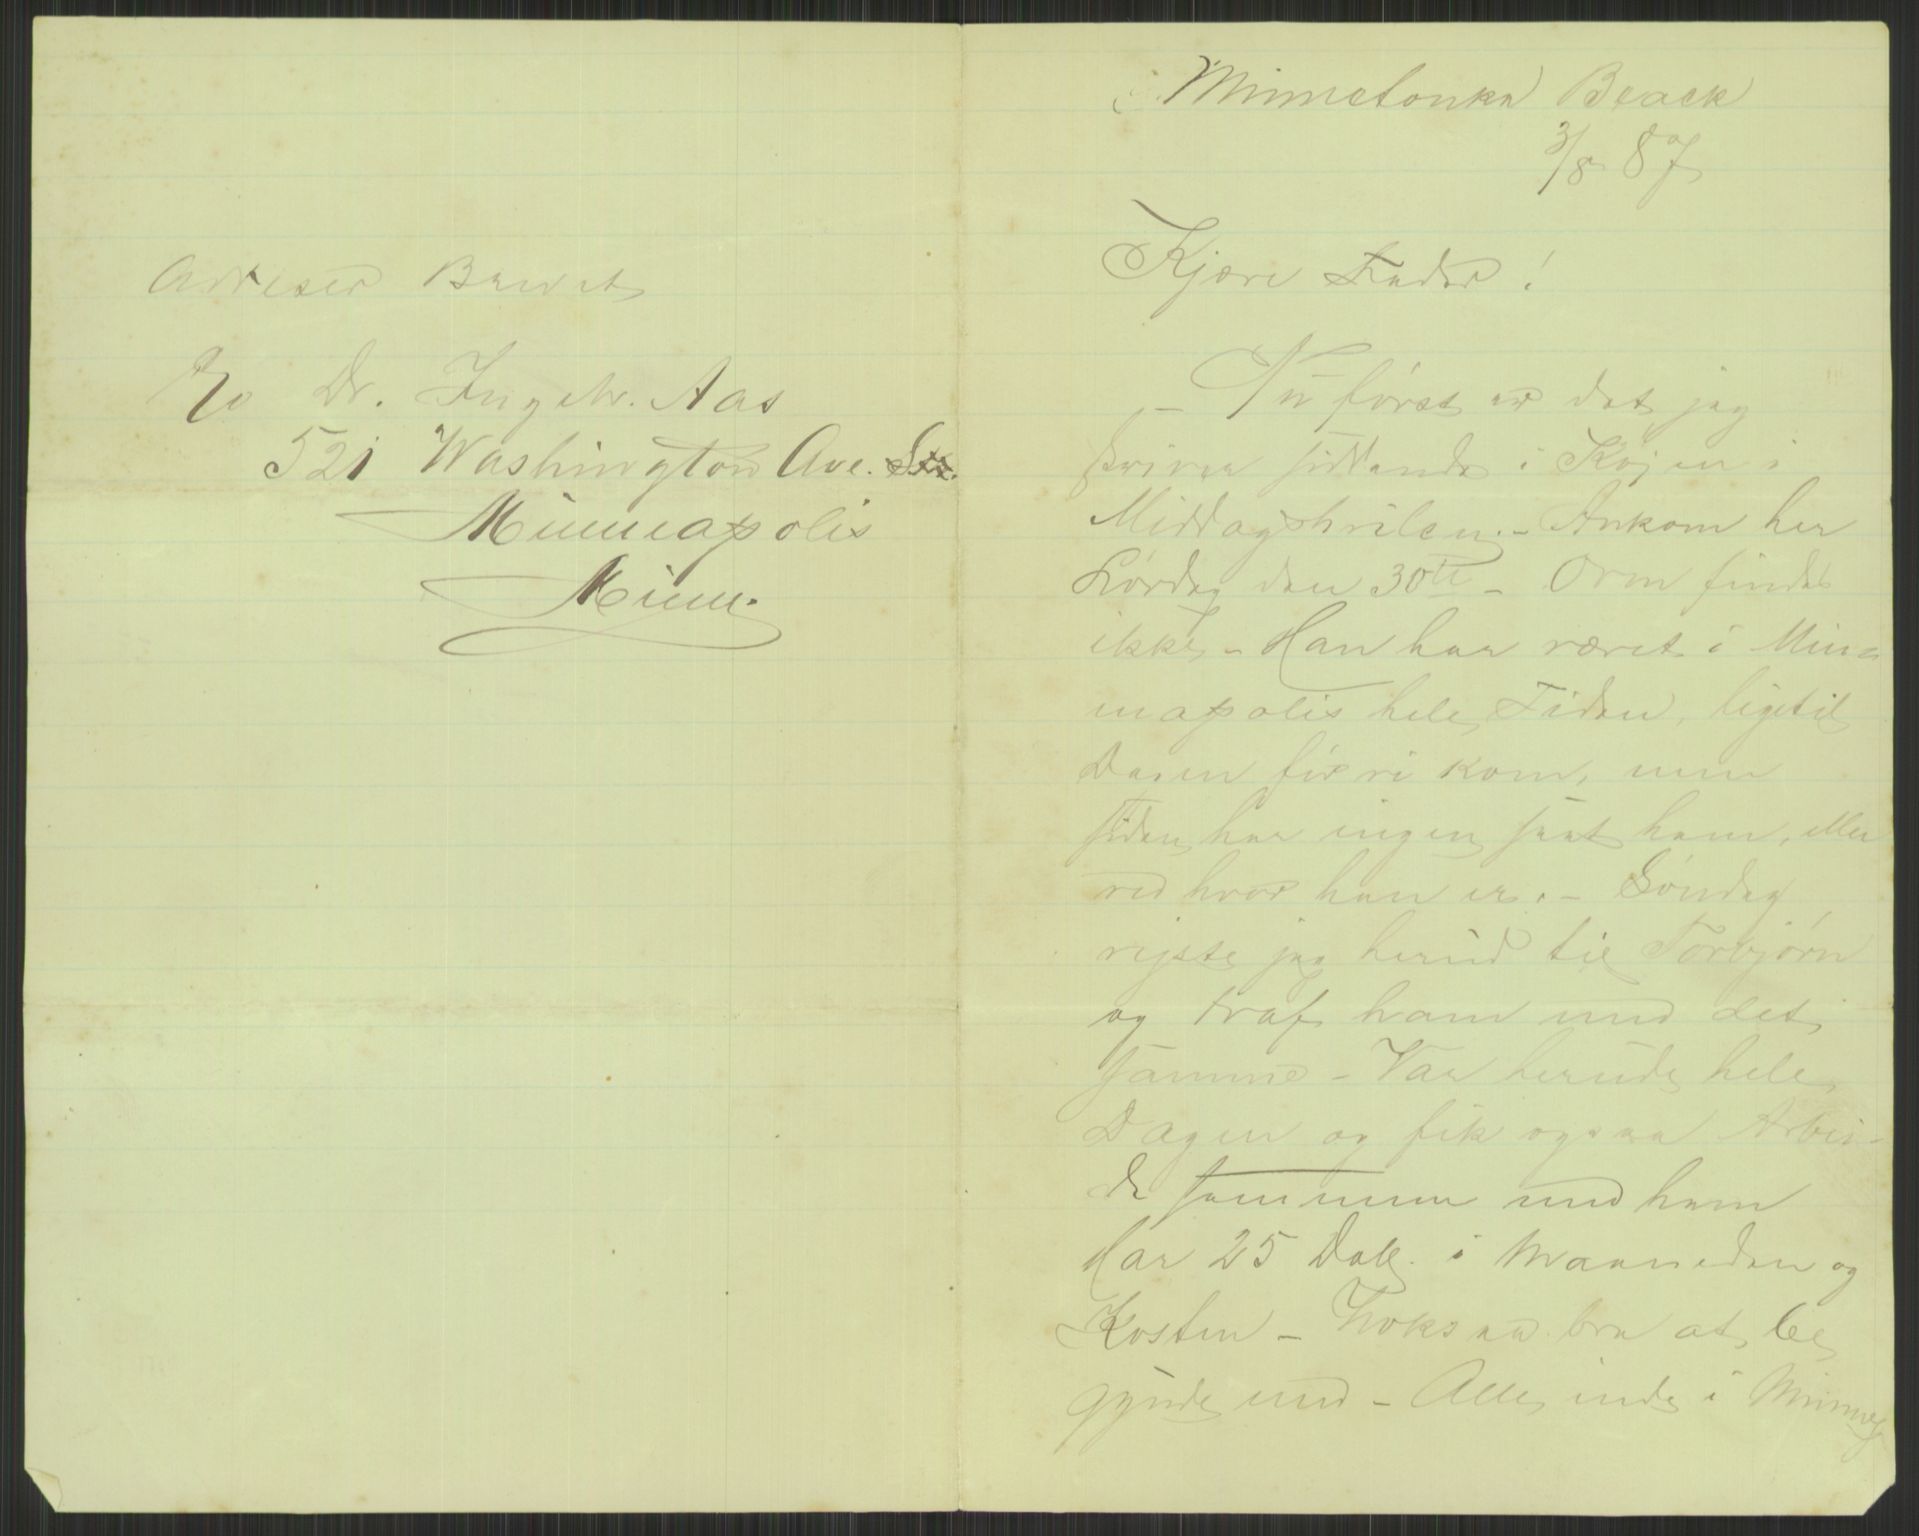 Adreser Brevet
To Dr. Ingebr. Aas
521 Washington Ave. Str.
Minneapolis
Minn.
Minnetonka Beack
3/8 87
Kjære Fader!
Nu først er det jeg
skriver siddende i Køjen i
Middagshvilen. - Ankom her
Lørdag den 30te - Orm findes
ikke, - Han har været i Min=
neapolis hele Tiden, ligetil
Dagen før vi kom, men
siden har ingen seet ham, eller
ved hvor han er. - Søndag
rejste jeg herud til Torbjørn
og traf ham med det
samme - Var herude hele
Dagen og fik ogsaa Arbei-
de sammen med ham
Har 25 Doll. i Maaneden og
Kosten - Noksaa bra at be
gynde med - Alle inde i Minne